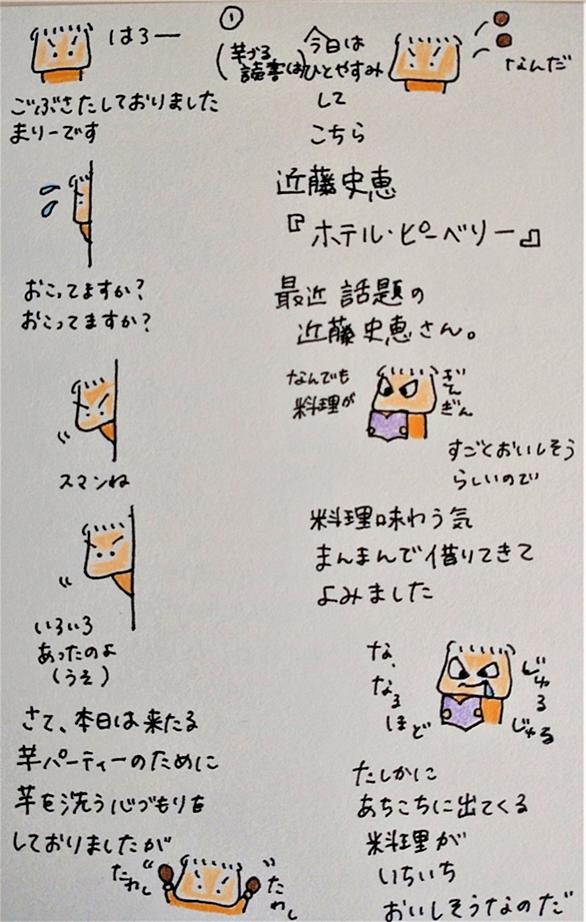 はろー
ごぶさたしておりました
まりーです
おこってますか?
おこってますか?
スマンね
いろいろ
あったのよ
(うそ)
さて、本日は来たる
芋パーティーのために
芋を洗う心づもりを
しておりましたが
たわし
たわし
①
(芋づる
読書は)
今日は
ひとやすみ
して
こちら
なんだ
近藤史恵
『ホテル・ピーベリー』
最近 話題の
近藤史恵さん。
なんでも
料理が
ぎん
ぎん
すごとおいしそう
らしいので
料理味わう気
まんまんで借りてきて
よみました
な、
なる
ほど
じゅる
じゅる
たしかに
あちこちに出てくる
料理が
いちいち
おいしそうなのだ